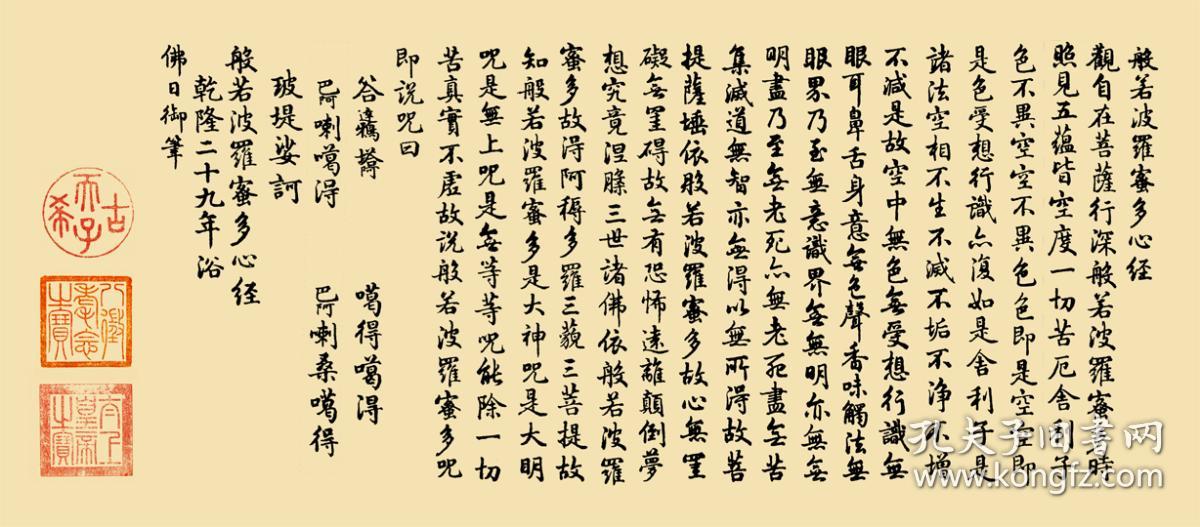 般若波羅蜜多心経
觀自在菩薩行深般若波羅蜜多時
照見五蘊皆空度一切苦厄舍利子
色不異空空不異色色即是空空即
是色受想行識亦復如是舍利子是
諸法空相不生不滅不垢不净不增
不減是故空中無色無受想行識無
眼耳鼻舌身意無色聲香味觸法無
眼界乃至無意識界無無明亦無無
明盡乃至無老死亦無老死盡無苦
集滅道無智亦無得以無所得故菩
提薩埵依般若波羅蜜多故心無罣
礙無罣碍故無有恐怖遠離顛倒夢
想究竟涅槃三世諸佛依般若波羅
蜜多故得阿耨多羅三藐三菩提故
知般若波羅蜜多是大神咒是大明
咒是無上咒是無等等咒能除一切
苦真實不虛故說般若波羅蜜多咒
即說咒曰
噶得噶得
巴阿喇噶得
巴阿喇桑噶得
玻堤娑訶
般若波羅蜜多心経
乾隆二十九年浴
佛日御筆
古希天子
八徵耄念之寶
太上皇帝之寶
孔夫子旧書网
www.kongfz.com